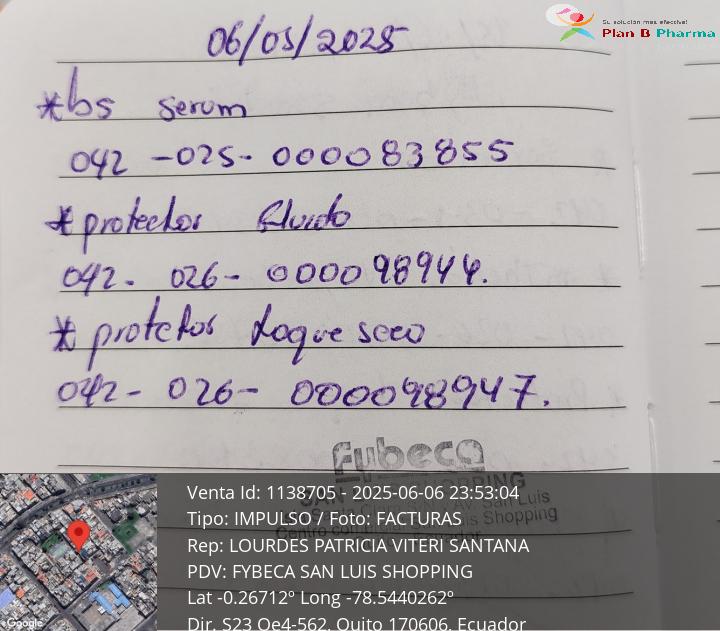 Su solución mas efectiva!
Plan B Pharma
06/05/2025
*bs serum
042 -025- 000083855
*protector fluido
042- 026- 000098944.
* protector toque seco
042- 026- 000098947.
fybeca
SHOPPING
Av. San Luis
Shopping
Venta Id: 1138705 - 2025-06-06 23:53:04
Tipo: IMPULSO / Foto: FACTURAS
Rep: LOURDES PATRICIA VITERI SANTANA
PDV: FYBECA SAN LUIS SHOPPING
Lat -0.26712° Long -78.5440262°
Dir. S23 Oe4-562, Quito 170606, Ecuador
Google